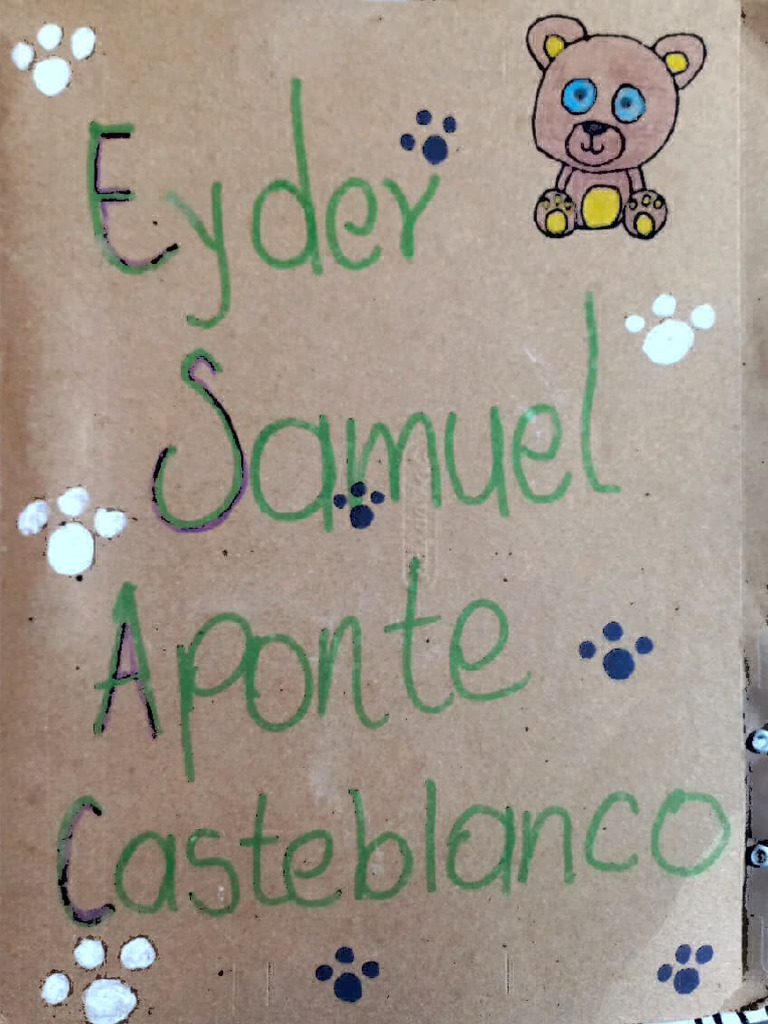 Eyder
Samuel
Aponte
Casteblanco